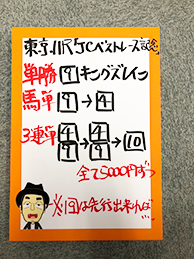 東京11R JCベストレース記念
単勝 9 キングズレイン
馬単 9→4
3連単 4/9→4/9→10
全て5000円ずつ
※1回は先行出来れば